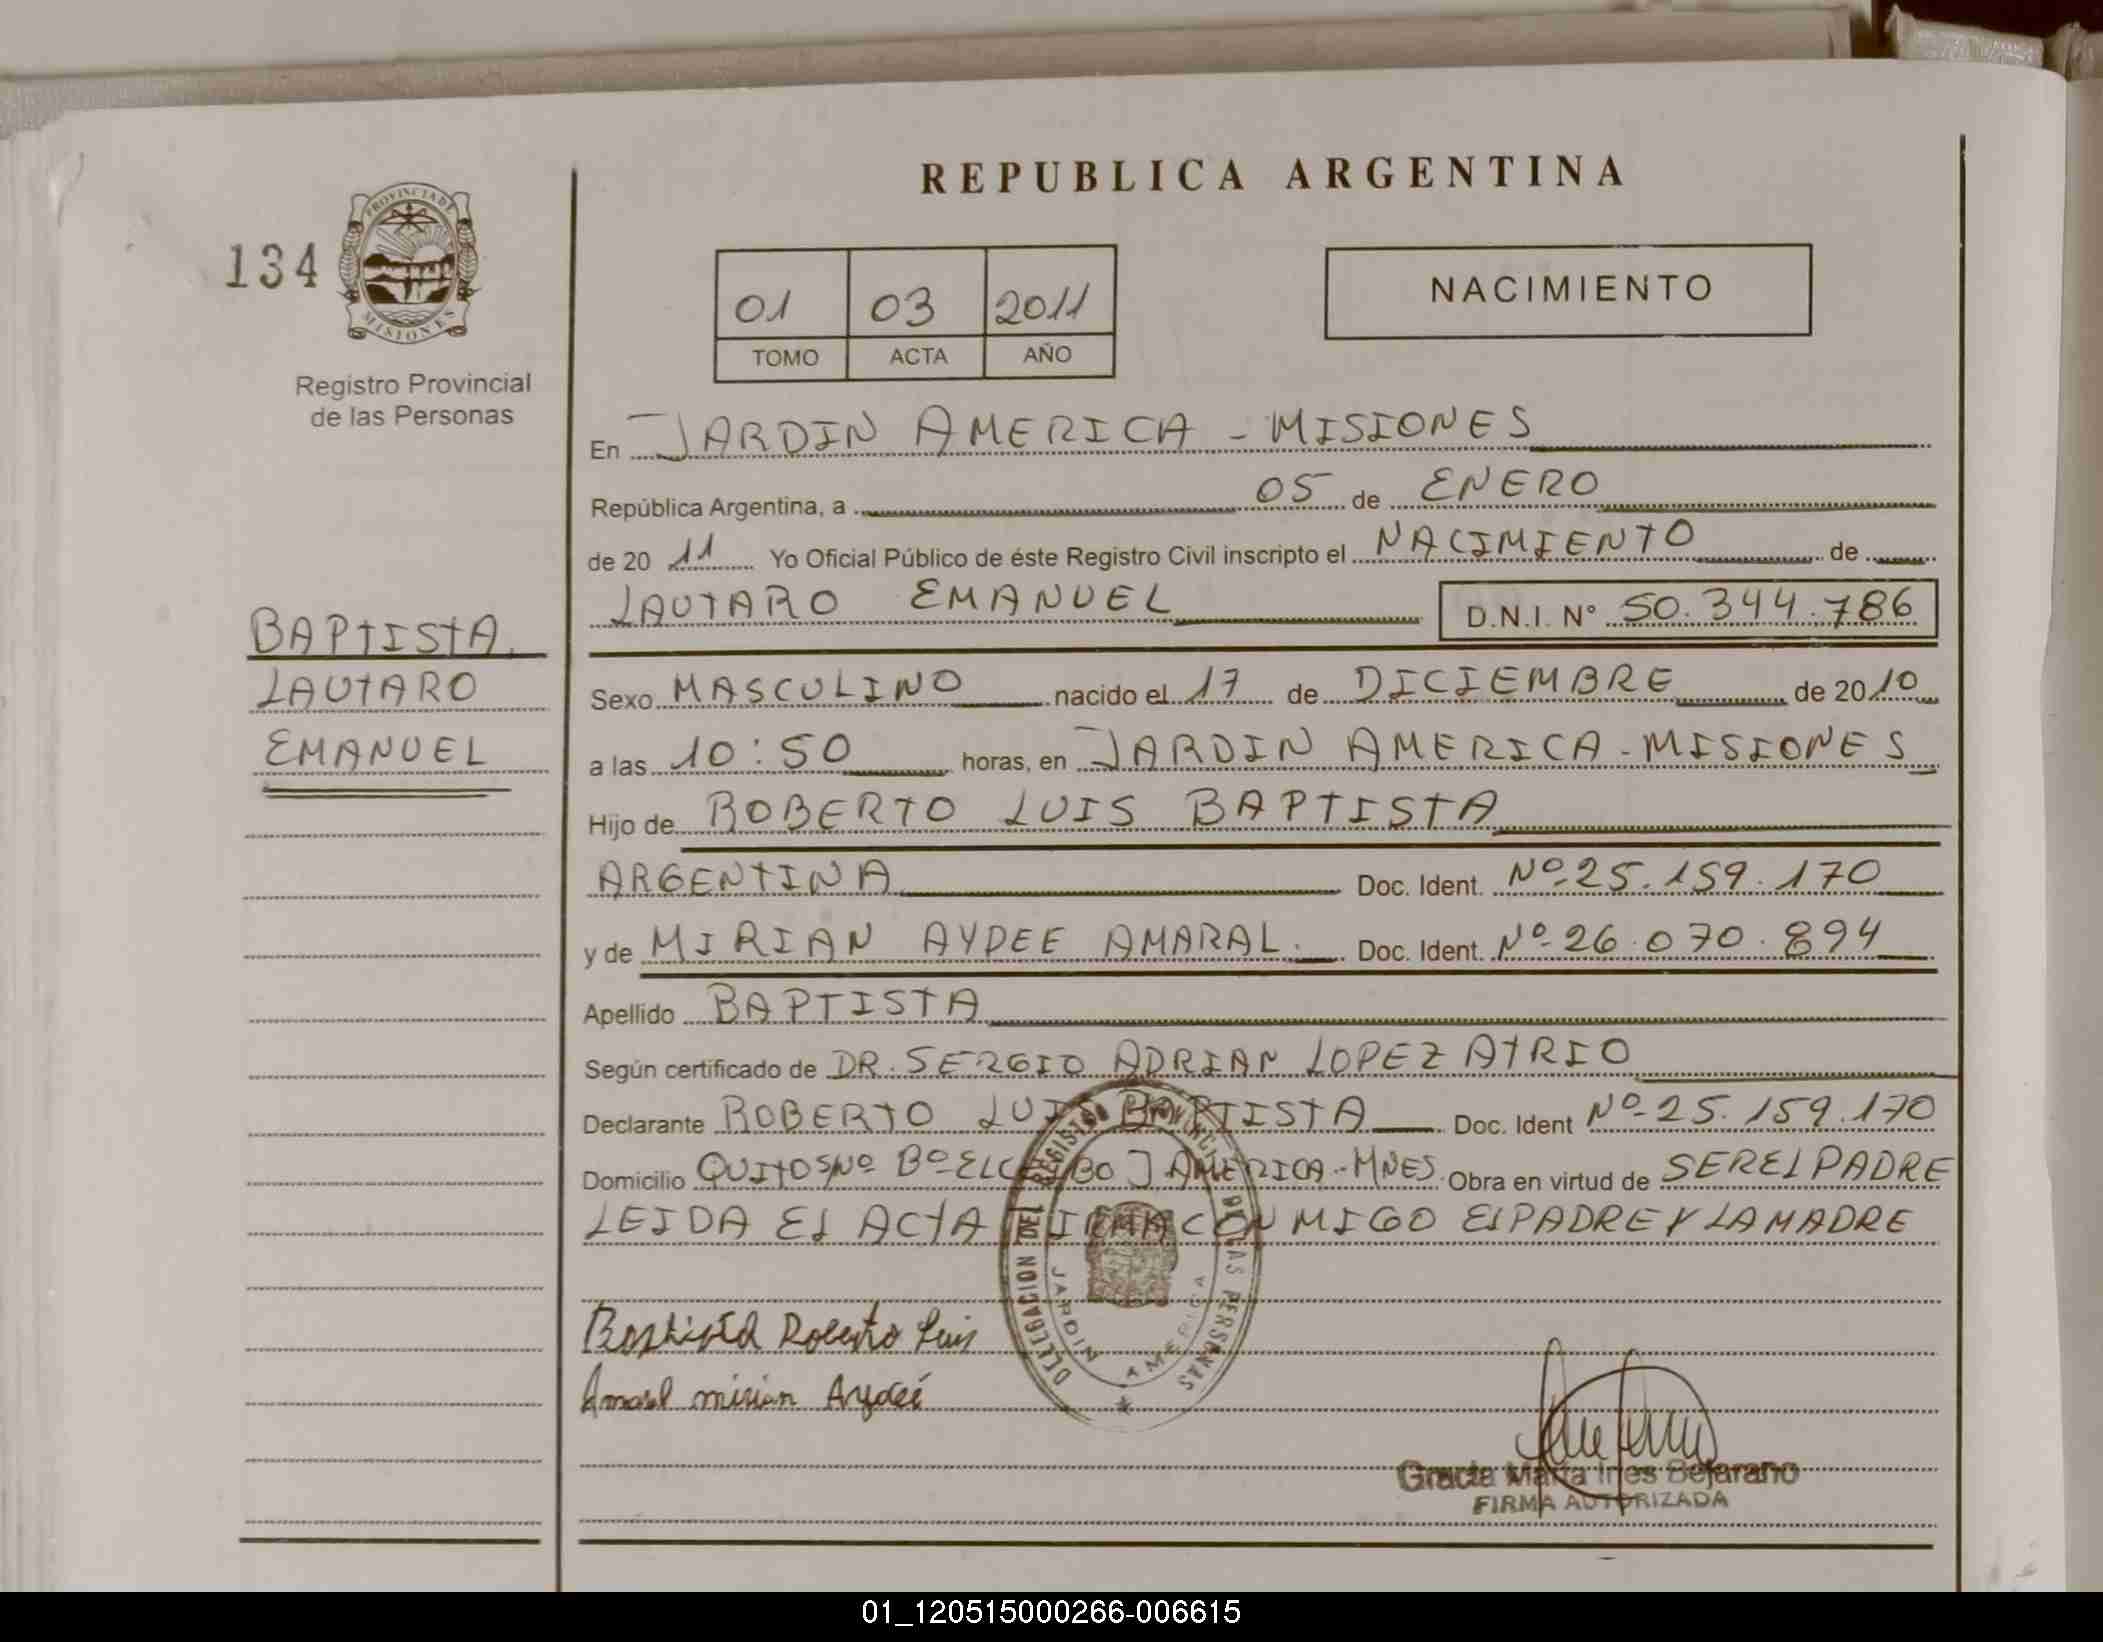 REPUBLICA ARGENTINA
134
PROVINCIA DE MISIONES
Registro Provincial
de las Personas
01 03 2011
TOMO ACTA AÑO
NACIMIENTO
En JARDIN AMERICA - MISIONES
República Argentina, a 05 de ENERO
de 20 11 Yo Oficial Público de éste Registro Civil inscripto el NACIMIENTO de
LAUTARO EMANUEL D.N.I. N° 50.344.786
BAPTISTA
LAUTARO
EMANUEL
Sexo MASCULINO nacido el 17 de DICIEMBRE de 20 10
a las 10:50 horas, en JARDIN AMERICA - MISIONES
Hijo de ROBERTO LUIS BAPTISTA
ARGENTINA Doc. Ident. Nº 25.159.170
y de MIRIAN AYDEE AMARAL. Doc. Ident. Nº 26.070.894
Apellido BAPTISTA
Según certificado de DR. SERGIO ADRIAN LOPEZ ATRIO
Declarante ROBERTO LUIS BAPTISTA Doc. Ident Nº 25.159.170
Domicilio QUITO S/Nº Bº EL J AMERICA - MNES. Obra en virtud de SER EL PADRE
LEIDA EL ACTA FIRMA CONMIGO EL PADRE Y LA MADRE
DELEGACION DEL REGISTRO PROVINCIAL DE LAS PERSONAS
JARDIN AMERICA
Baptista Roberto Luis
Amaral mirian Aydeé
Gracia María Ines Bejarano
FIRMA AUTORIZADA
01_120515000266-006615